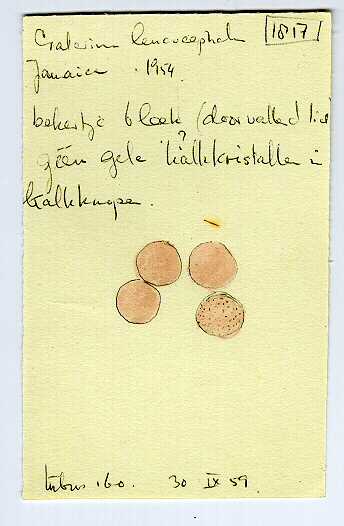 Craterium leucocephalum 1817
Jamaica . 1954
bekertje bleek (door vallend licht)
?
géén gele kalkkristallen in
kalkknopen.
tubus 160. 30 IX 59.